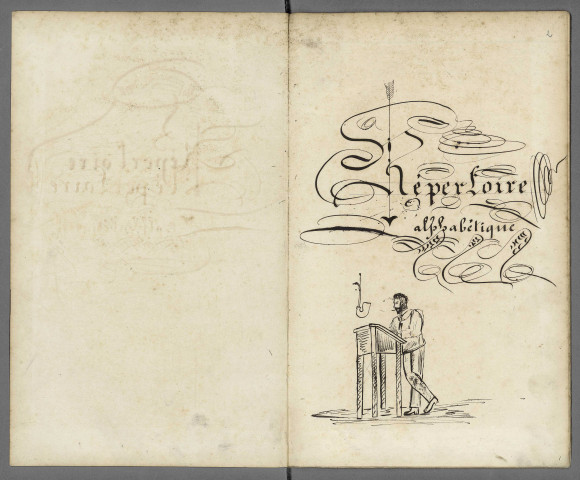 2
Répertoire
alphabétique